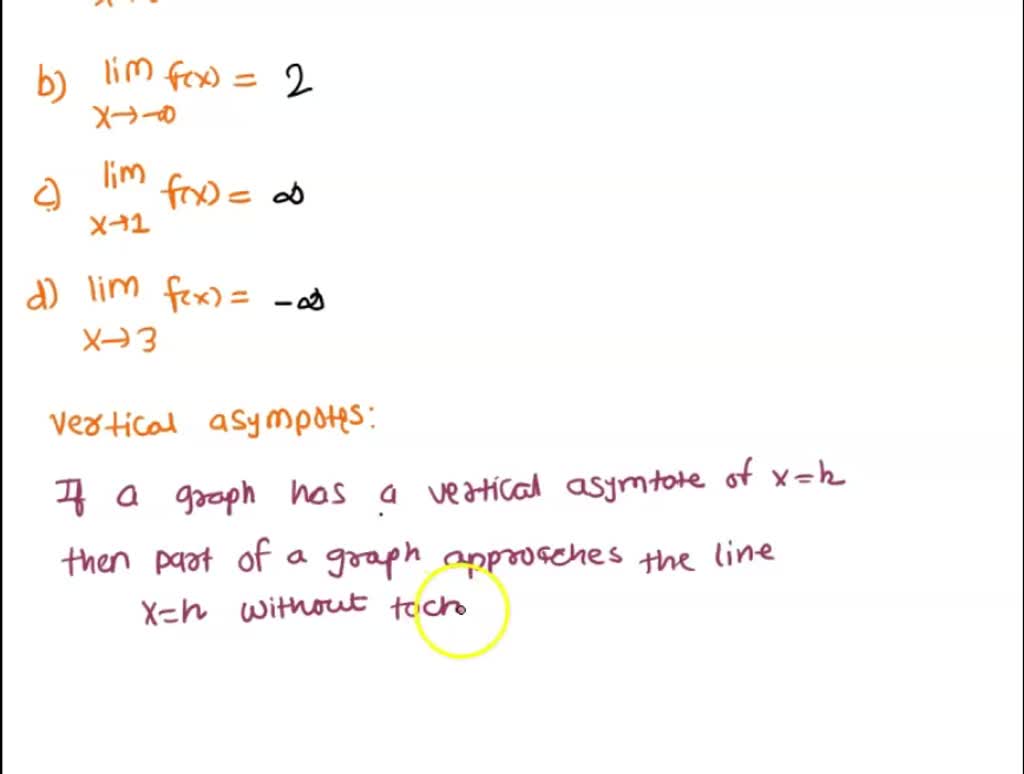 b) lim f(x) = 2
x→-∞
c) lim f(x) = ∞
x→1
d) lim f(x) = -∞
x→3
vertical asympotes:
If a graph has a vertical asymtote of x=h
then part of a graph approaches the line
x=h without toch